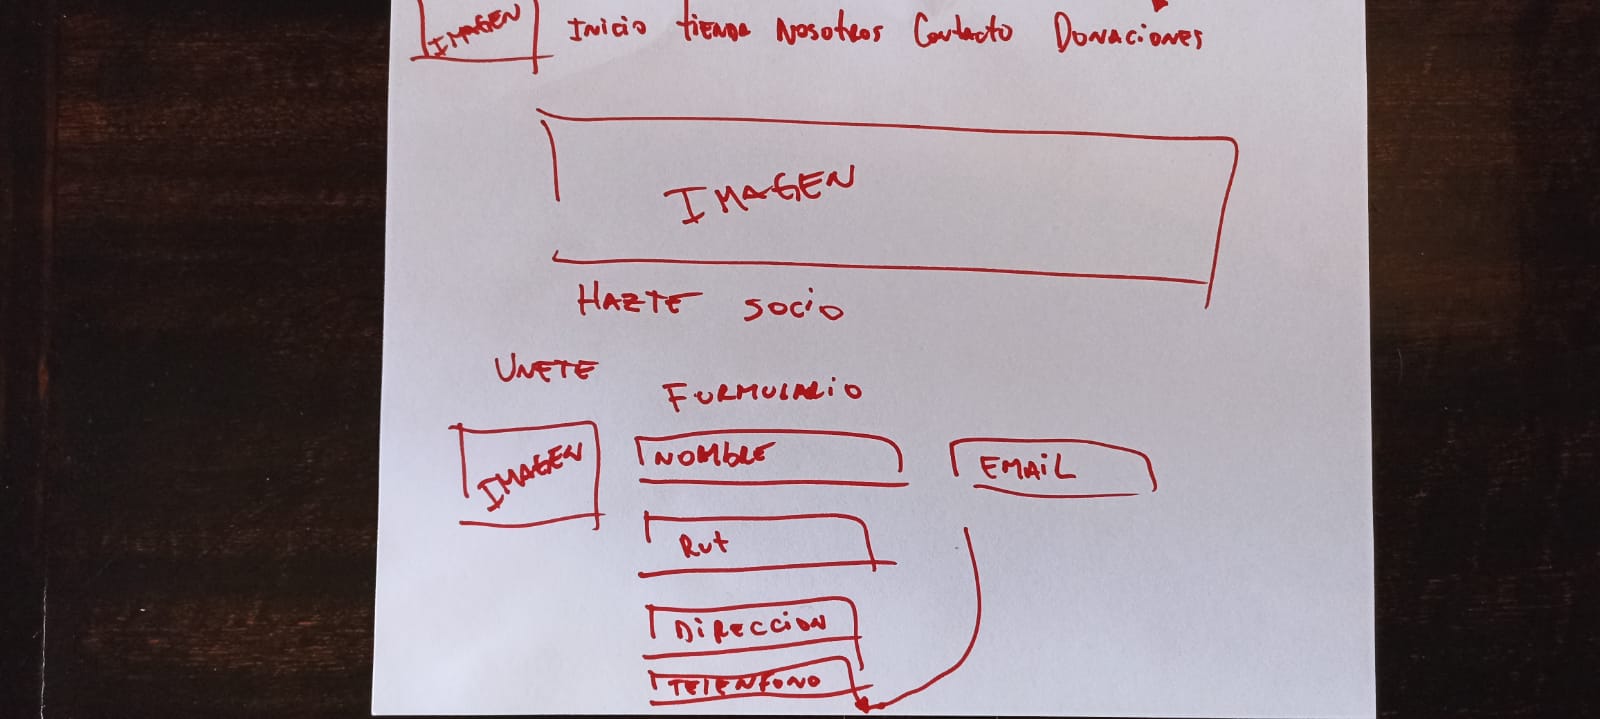 IMAGEN Inicio tienda Nosotros Contacto Donaciones
IMAGEN
HAZTE socio
UNETE
FORMULARIO
IMAGEN NOMbRE EMAiL
Rut
DiRECCiON
TELENFONO